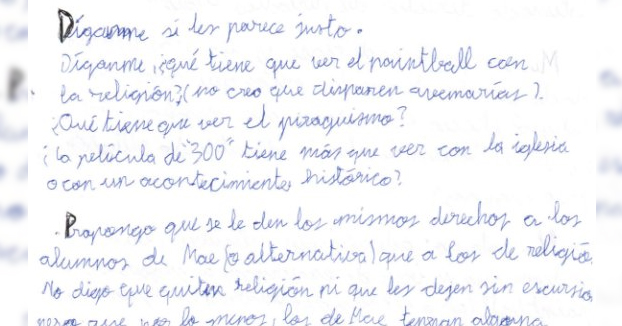 Díganme si les parece justo.
Díganme, ¿qué tiene que ver el paintball con
la religión? (no creo que disparen avemarías).
¿Qué tiene que ver el piragüismo?
¿La película de "300" tiene más que ver con la iglesia
o con un acontecimiento histórico?
. Propongo que se le den los mismos derechos a los
alumnos de Mae (o alternativa) que a los de religión.
No digo que quiten religión ni que les dejen sin excursio
pero que por lo menos, los de Mae tengan alguna